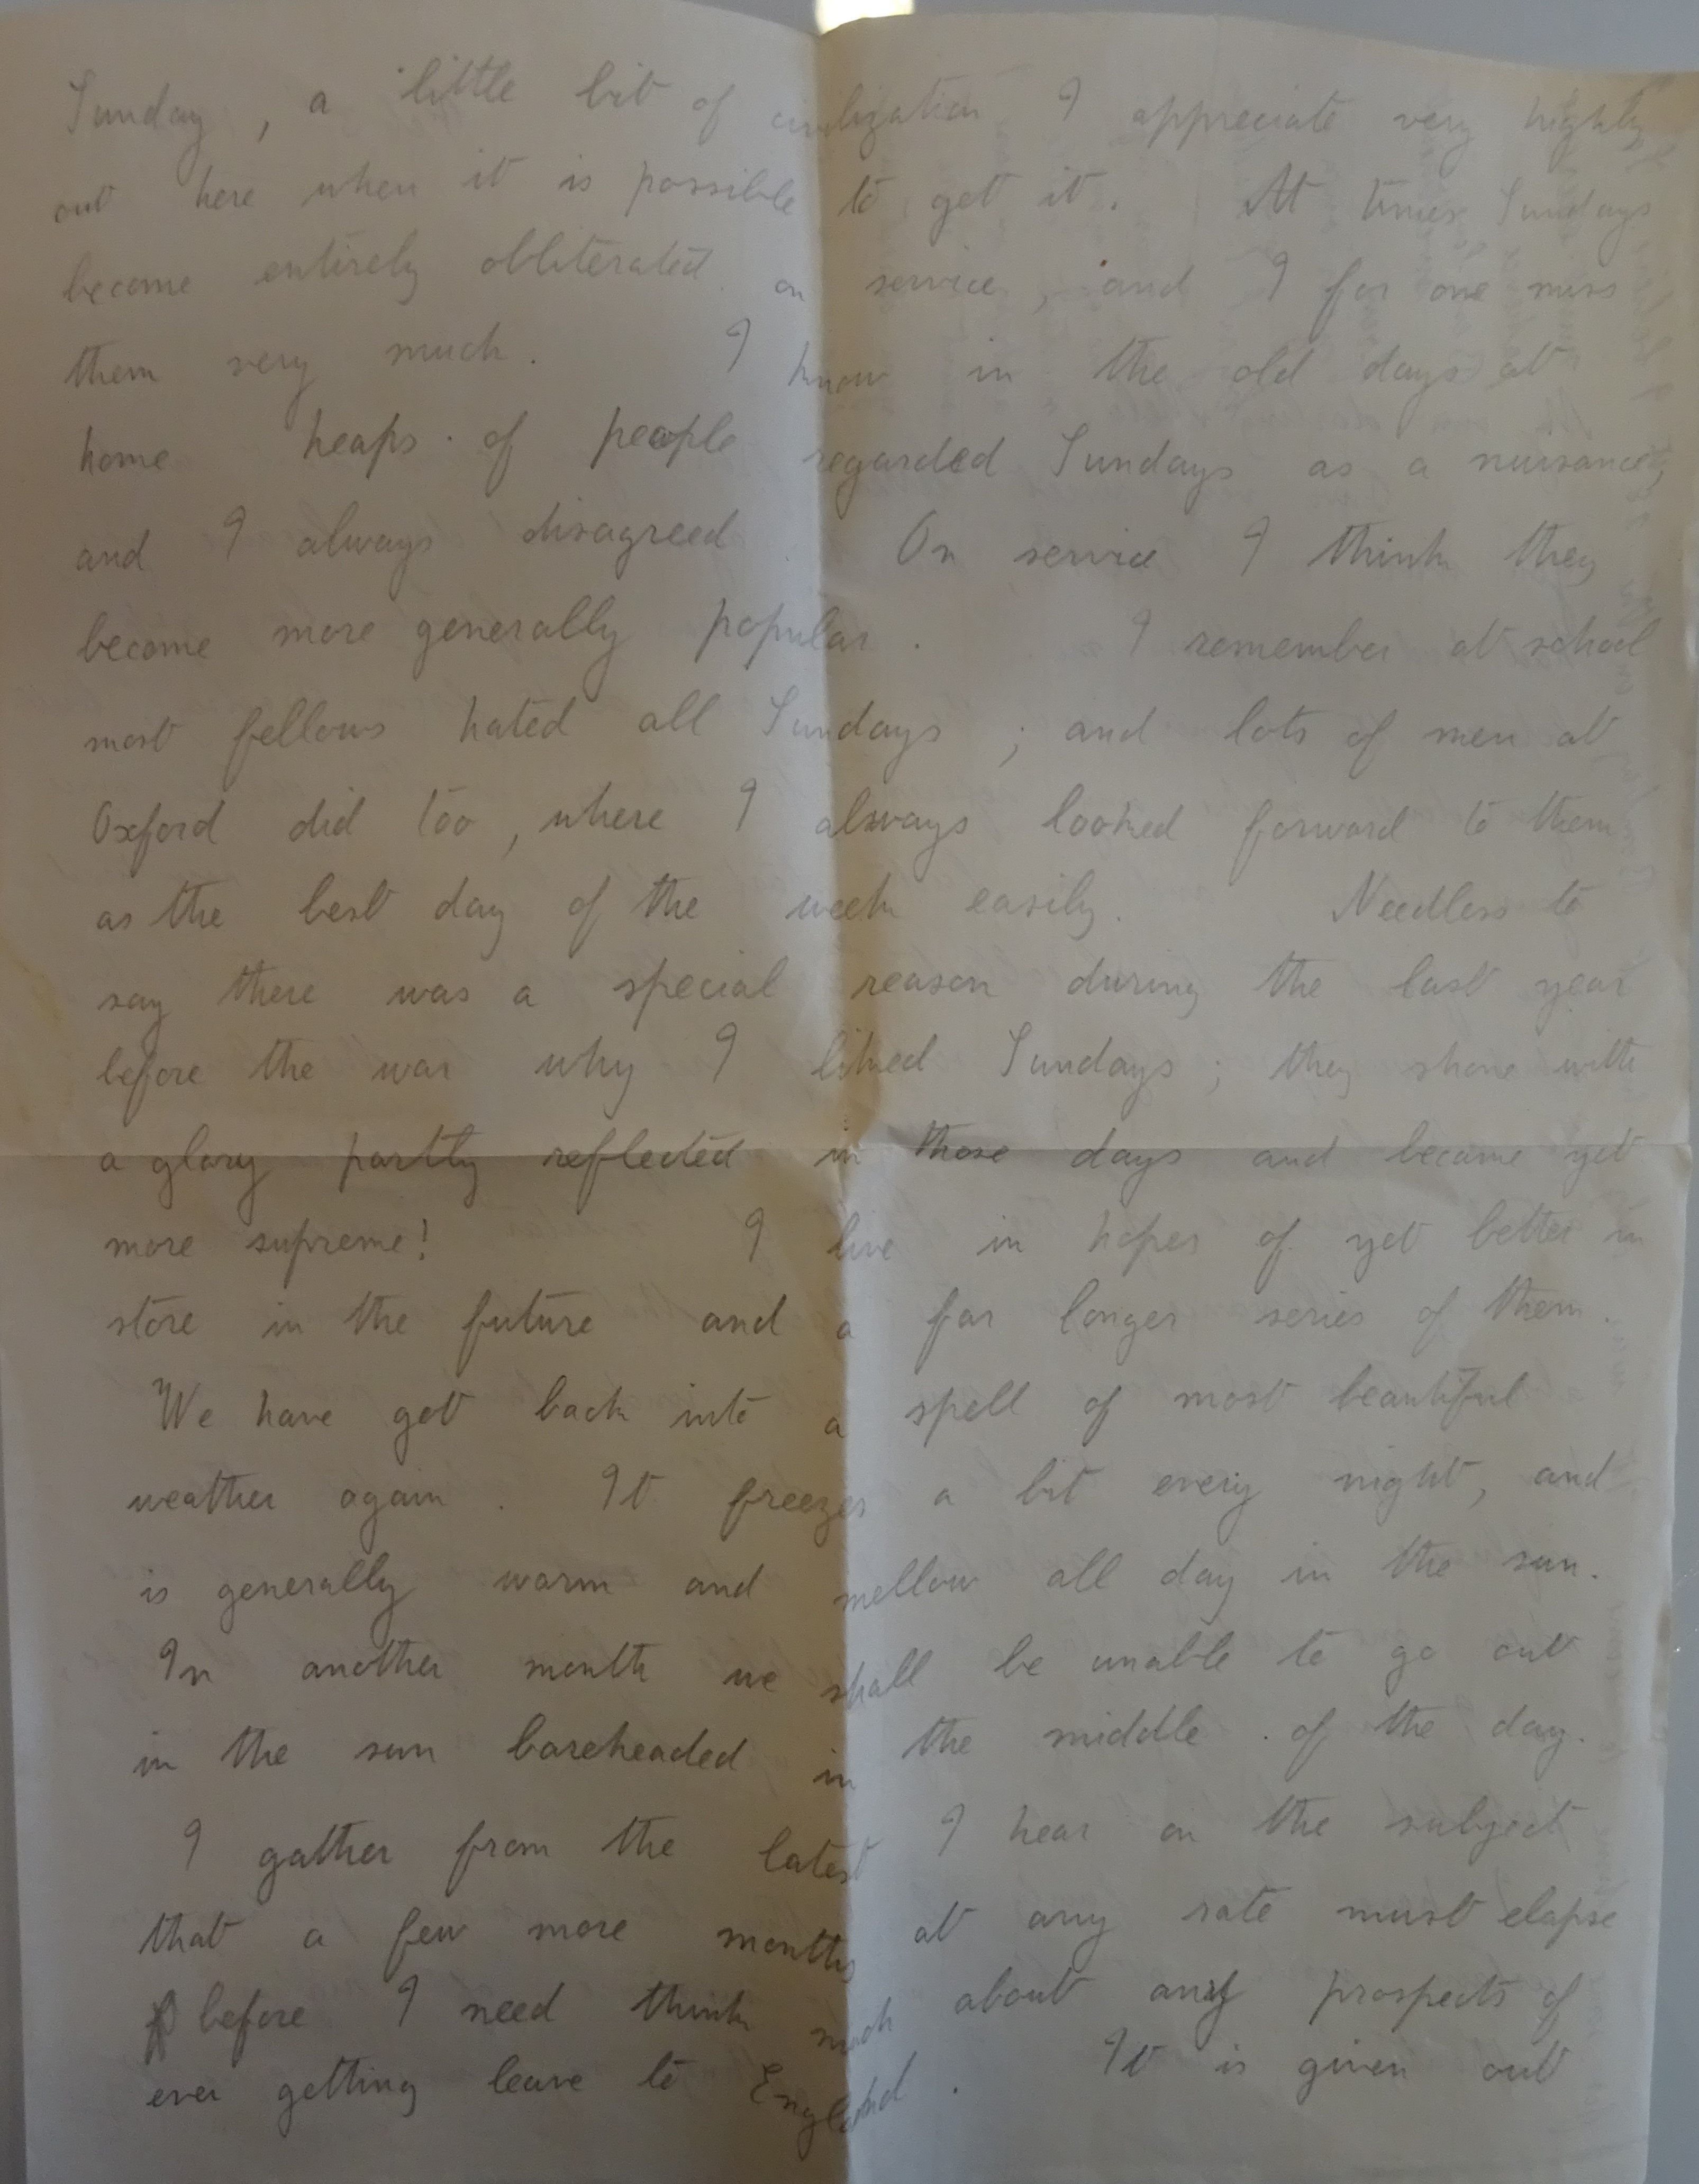 Sunday, a little bit of civilization I appreciate very highly
out here when it is possible to get it. At times Sundays
become entirely obliterated on service, and I for one miss
them very much. I know in the old days at
home heaps of people regarded Sundays as a nuisance,
and I always disagreed. On service I think they
become more generally popular. I remember at school
most fellows hated all Sundays; and lots of men at
Oxford did too, where I always looked forward to them
as the best day of the week easily. Needless to
say there was a special reason during the last year
before the war why I liked Sundays; they shone with
a glory partly reflected in those days and became yet
more supreme! I live in hopes of yet better in
store in the future and a far longer series of them.
We have got back into a spell of most beautiful
weather again. It freezes a bit every night, and
is generally warm and mellow all day in the sun.
In another month we shall be unable to go out
in the sun bareheaded in the middle of the day.
I gather from the latest I hear on the subject
that a few more months at any rate must elapse
before I need think much about any prospects of
ever getting leave to England. It is given out